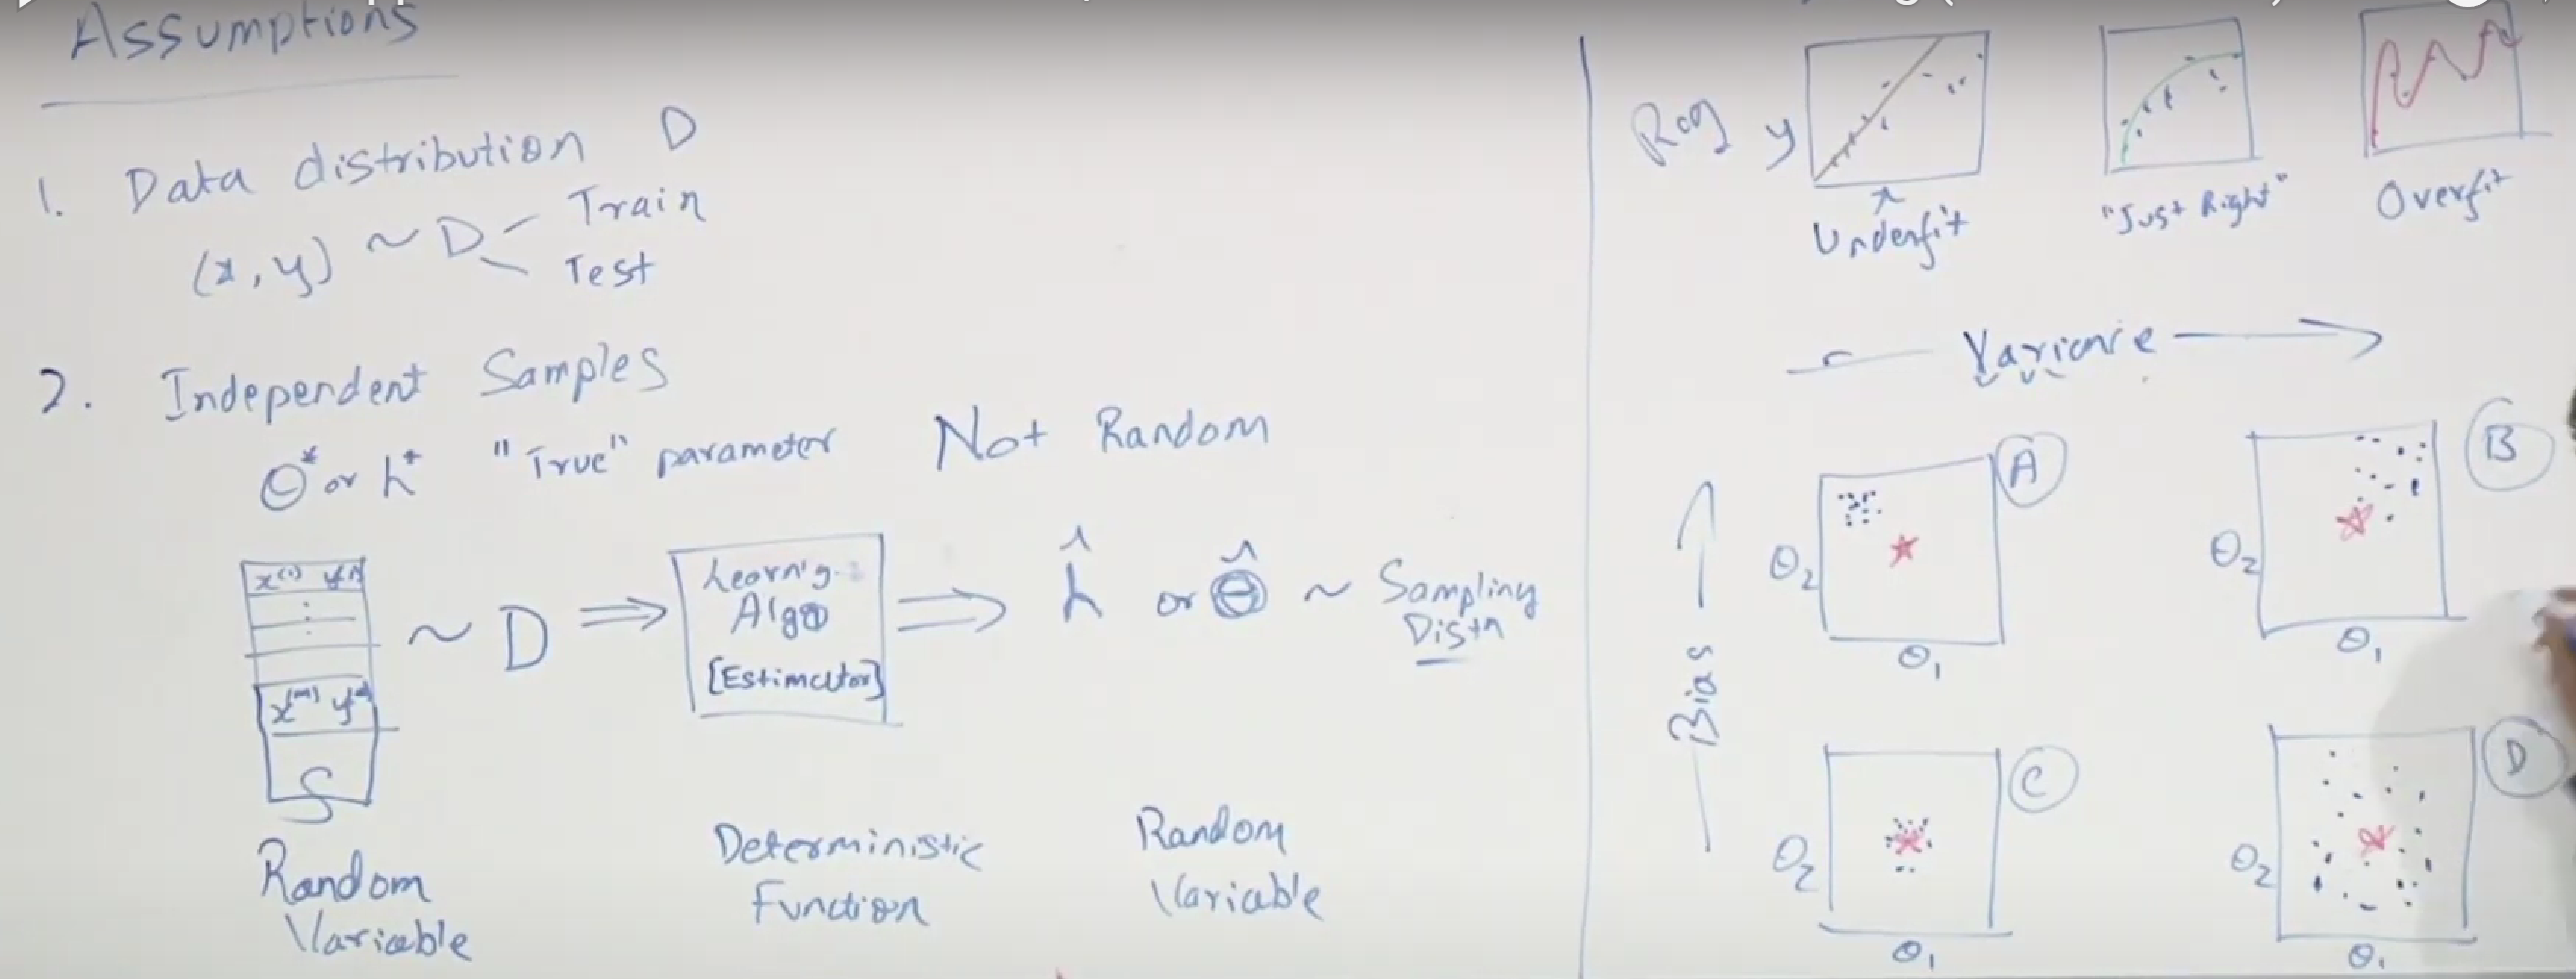 Assumptions
1. Data distribution D
(x, y) ~ D
Train
Test
2. Independent Samples
Θ* or h* "True" parameter Not Random
x⁽¹⁾ y⁽¹⁾
:
:
x⁽ᵐ⁾ y⁽ᵐ⁾
S
~ D ⇒
Learn'g
Algo
[Estimator]
⇒ ĥ or Θ̂ ~ Sampling
Distn
Random
Variable
Deterministic
Function
Random
Variable
Reg y
x
Underfit
"Just Right"
Overfit
Variance
Bias
A
θ₂
θ₁
B
θ₂
θ₁
C
θ₂
θ₁
D
θ₂
θ₁